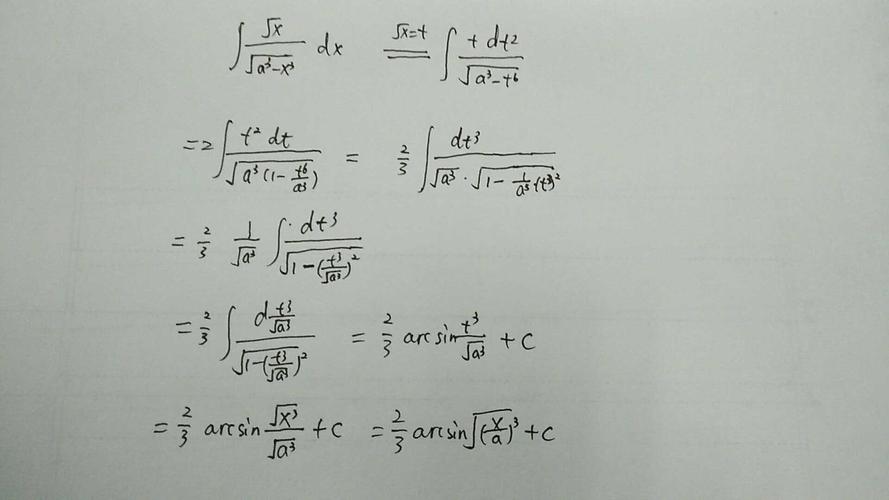 ∫ √x / √(a³-x³) dx  =(√x=t)  ∫ t dt² / √(a³-t⁶)
=2 ∫ t² dt / √(a³(1-t⁶/a³)) = 2/3 ∫ dt³ / (√a³ · √(1-1/a³ (t³)²))
= 2/3 1/√a³ ∫ dt³ / √(1-(t³/√a³)²)
= 2/3 ∫ d t³/√a³ / √(1-(t³/√a³)²) = 2/3 arcsin t³/√a³ + C
= 2/3 arcsin √x³/√a³ + C = 2/3 arcsin √(x/a)³ + C